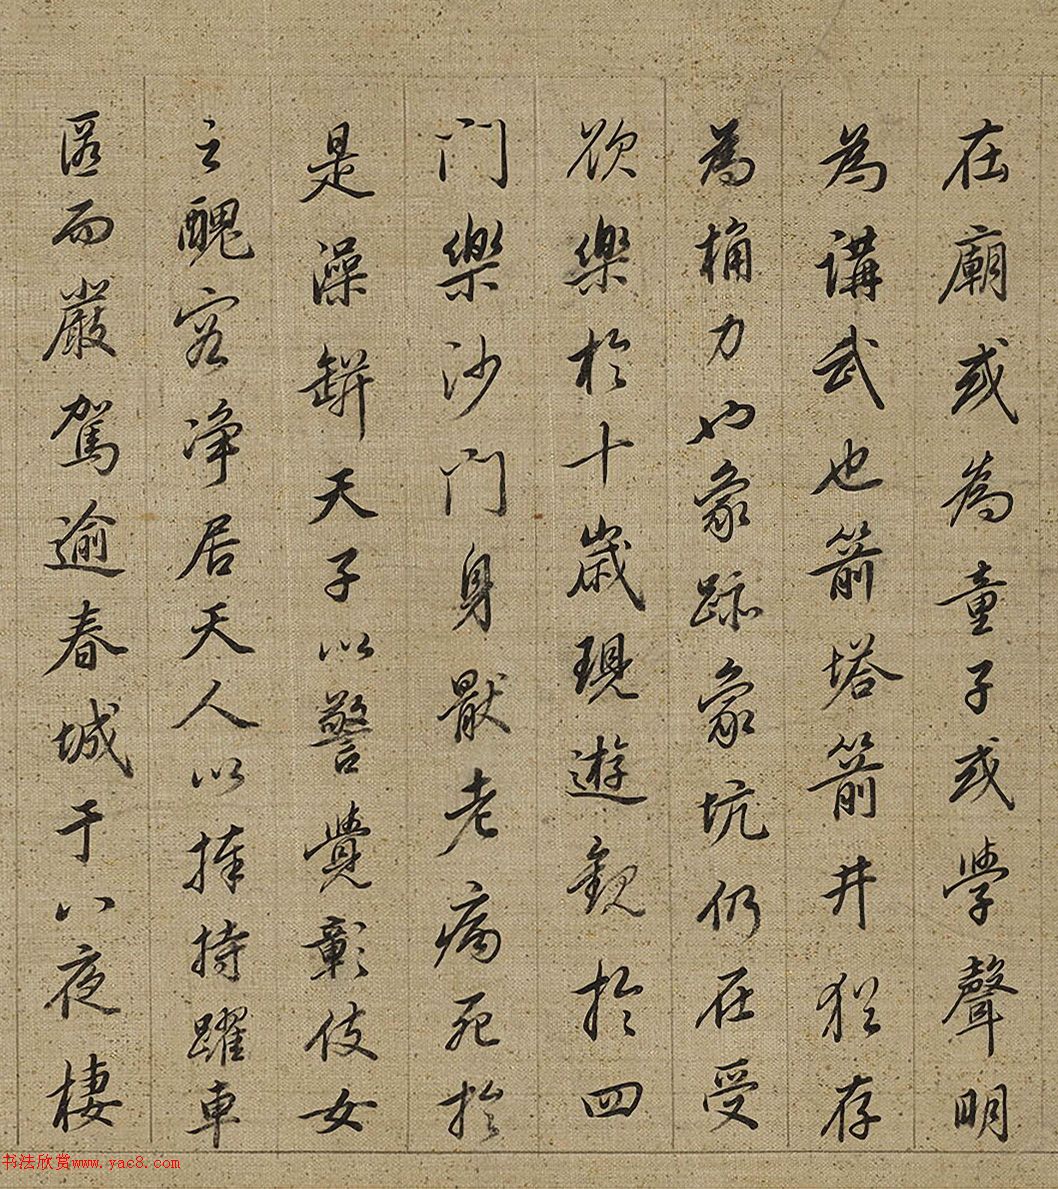 在廟或為童子或學聲明
為講武也箭塔箭井猶存
為桷力也象跡象坑仍在受
欲樂於十歲現遊觀於四
門樂沙門身厭老病死於
是澡缾天子以警覺彰伎女
之醜容淨居天人以捧持躍車
匿而嚴駕逾春城于八夜棲
书法欣赏www.yac8.com